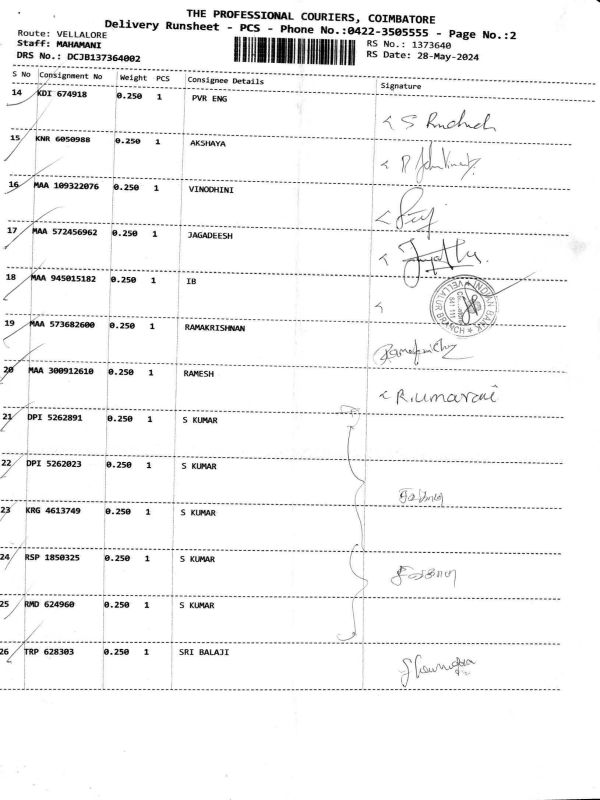 THE PROFESSIONAL COURIERS, COIMBATORE
Delivery Runsheet - PCS - Phone No.:0422-3505555 - Page No.:2
Route: VELLALORE
Staff: MAHAMANI RS No.: 1373640
DRS No.: DCJB137364002 RS Date: 28-May-2024
S No Consignment No Weight PCS Consignee Details Signature
14 KDI 674918 0.250 1 PVR ENG
15 KNR 6050988 0.250 1 AKSHAYA
16 MAA 109322076 0.250 1 VINODHINI
17 MAA 572456962 0.250 1 JAGADEESH
18 MAA 945015182 0.250 1 IB
INDIAN BANK
VELLALUR BRANCH
19 MAA 573682600 0.250 1 RAMAKRISHNAN
20 MAA 300912610 0.250 1 RAMESH
R.umarani
21 DPI 5262891 0.250 1 S KUMAR
22 DPI 5262023 0.250 1 S KUMAR
23 KRG 4613749 0.250 1 S KUMAR
24 RSP 1850325 0.250 1 S KUMAR
25 RMD 624960 0.250 1 S KUMAR
26 TRP 628303 0.250 1 SRI BALAJI